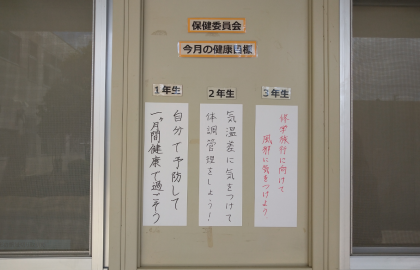 保健委員会
今月の健康目標
1年生
2年生
3年生
自分で予防して
一ヶ月間健康で過ごそう
気温差に気をつけて
体調管理をしよう!
修学旅行に向けて
風邪に気をつけよう